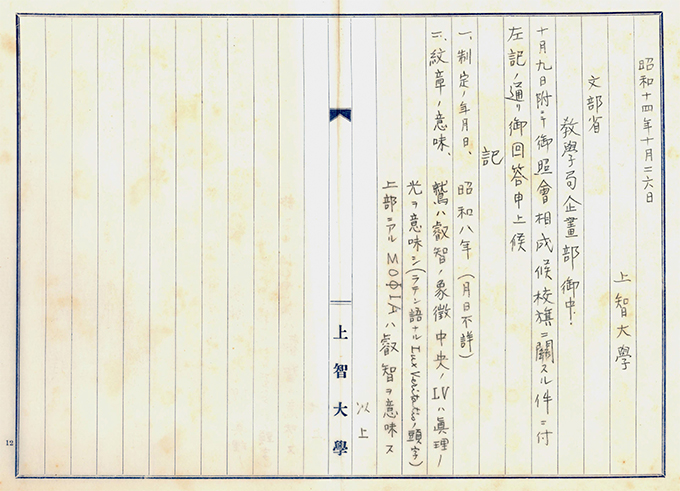 昭和十四年十月二六日
上智大學
文部省
教學局企畫部御中
十月九日附ニテ御照會相成候校旗ニ關スル件ニ付
左記ノ通リ御回答申上候
記
一、制定ノ年月日、 昭和八年 (月日不詳)
二、紋章ノ意味、 鷲ハ叡智ノ象徴 中央ノ L.V ハ眞理ノ
光ヲ意味シ(ラテン語ナル Lux Veritatis ノ頭字)
上部ニアル ΜΟΦΙΑ ハ叡智ヲ意味ス
以上
上智大學
12